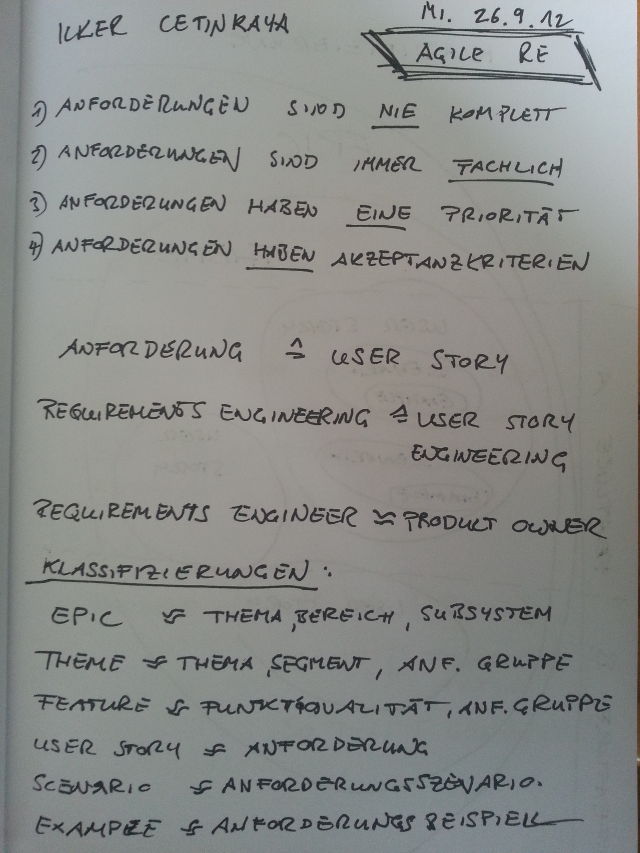 ILKER CETINKAYA
MI. 26.9.12
AGILE RE
1) ANFORDERUNGEN SIND NIE KOMPLETT
2) ANFORDERUNGEN SIND IMMER FACHLICH
3) ANFORDERUNGEN HABEN EINE PRIORITÄT
4) ANFORDERUNGEN HABEN AKZEPTANZKRITERIEN
ANFORDERUNG ≙ USER STORY
REQUIREMENTS ENGINEERING ≙ USER STORY
ENGINEERING
REQUIREMENTS ENGINEER ≈ PRODUCT OWNER
KLASSIFIZIERUNGEN:
EPIC ≈ THEMA, BEREICH, SUBSYSTEM
THEME ≈ THEMA, SEGMENT, ANF. GRUPPE
FEATURE ≈ FUNKT/QUALITÄT, ANF. GRUPPE
USER STORY ≈ ANFORDERUNG
SCENARIO ≈ ANFORDERUNGSSZENARIO.
EXAMPLE ≈ ANFORDERUNGSBEISPIEL